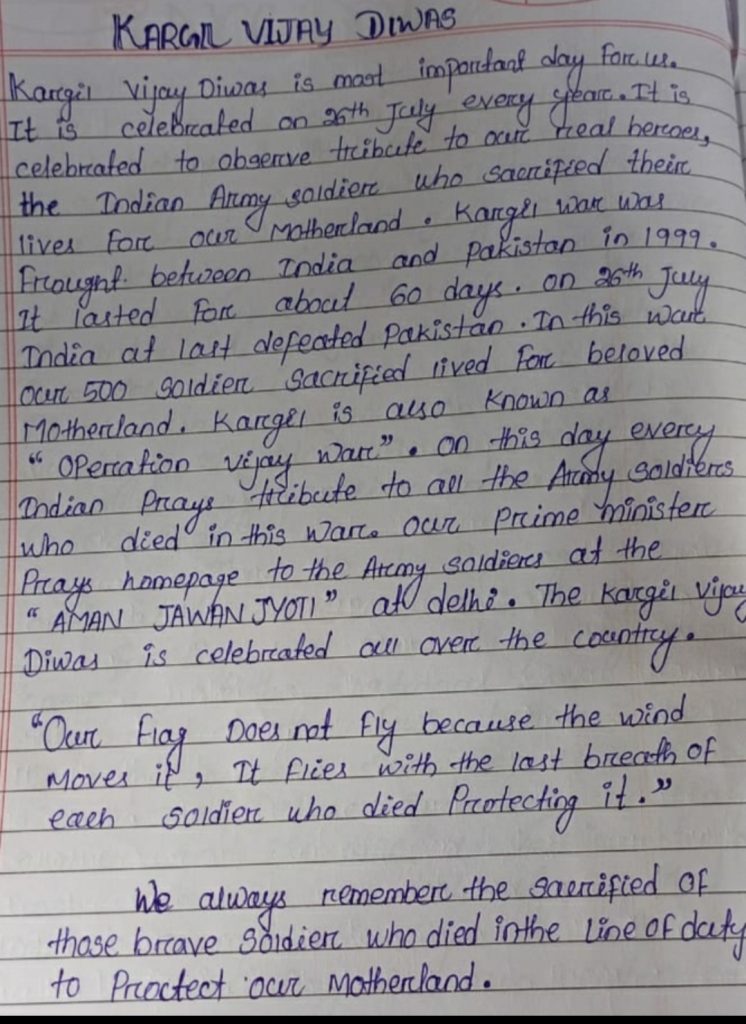 KARGIL VIJAY DIWAS
Kargil Vijay Diwas is most important day for us.
It is celebrated on 26th July every year. It is
celebrated to observe tribute to our real heroes,
the Indian Army soldier who sacrified their
lives for our Motherland. Kargil war was
Frought between India and Pakistan in 1999.
It lasted for about 60 days. on 26th July
India at last defeated Pakistan. In this war
our 500 soldier sacrified lived for beloved
Motherland. Kargil is also known as
"Operation vijay war". on this day every
Indian Prays tribute to all the Army soldiers
who died in this war. our prime minister
Prays homepage to the Army soldiers at the
"AMAN JAWAN JYOTI" at delhi. The Kargil Vijay
Diwas is celebrated all over the country.
"Our Flag Does not fly because the wind
moves it, It flies with the last breath of
each soldier who died Protecting it."
We always remember the sacrified of
those brave soldier who died in the line of duty
to Proctect our Motherland.